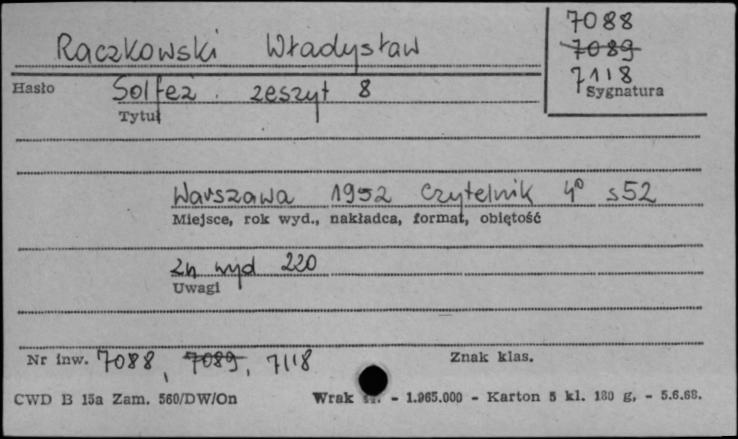 7088
Raczkowski Władysław 7089
7118
Hasło Solfeż. zeszyt 8 Sygnatura
Tytuł
Warszawa 1952 Czytelnik 4º s52
Miejsce, rok wyd., nakładca, format, obiętość
Zn wyd 220
Uwagi
Nr inw. 7088, 7089, 7118 Znak klas.
CWD B 15a Zam. 560/DW/On Wrak - 1.965.000 - Karton 5 kl. 180 g, - 5.6.68.